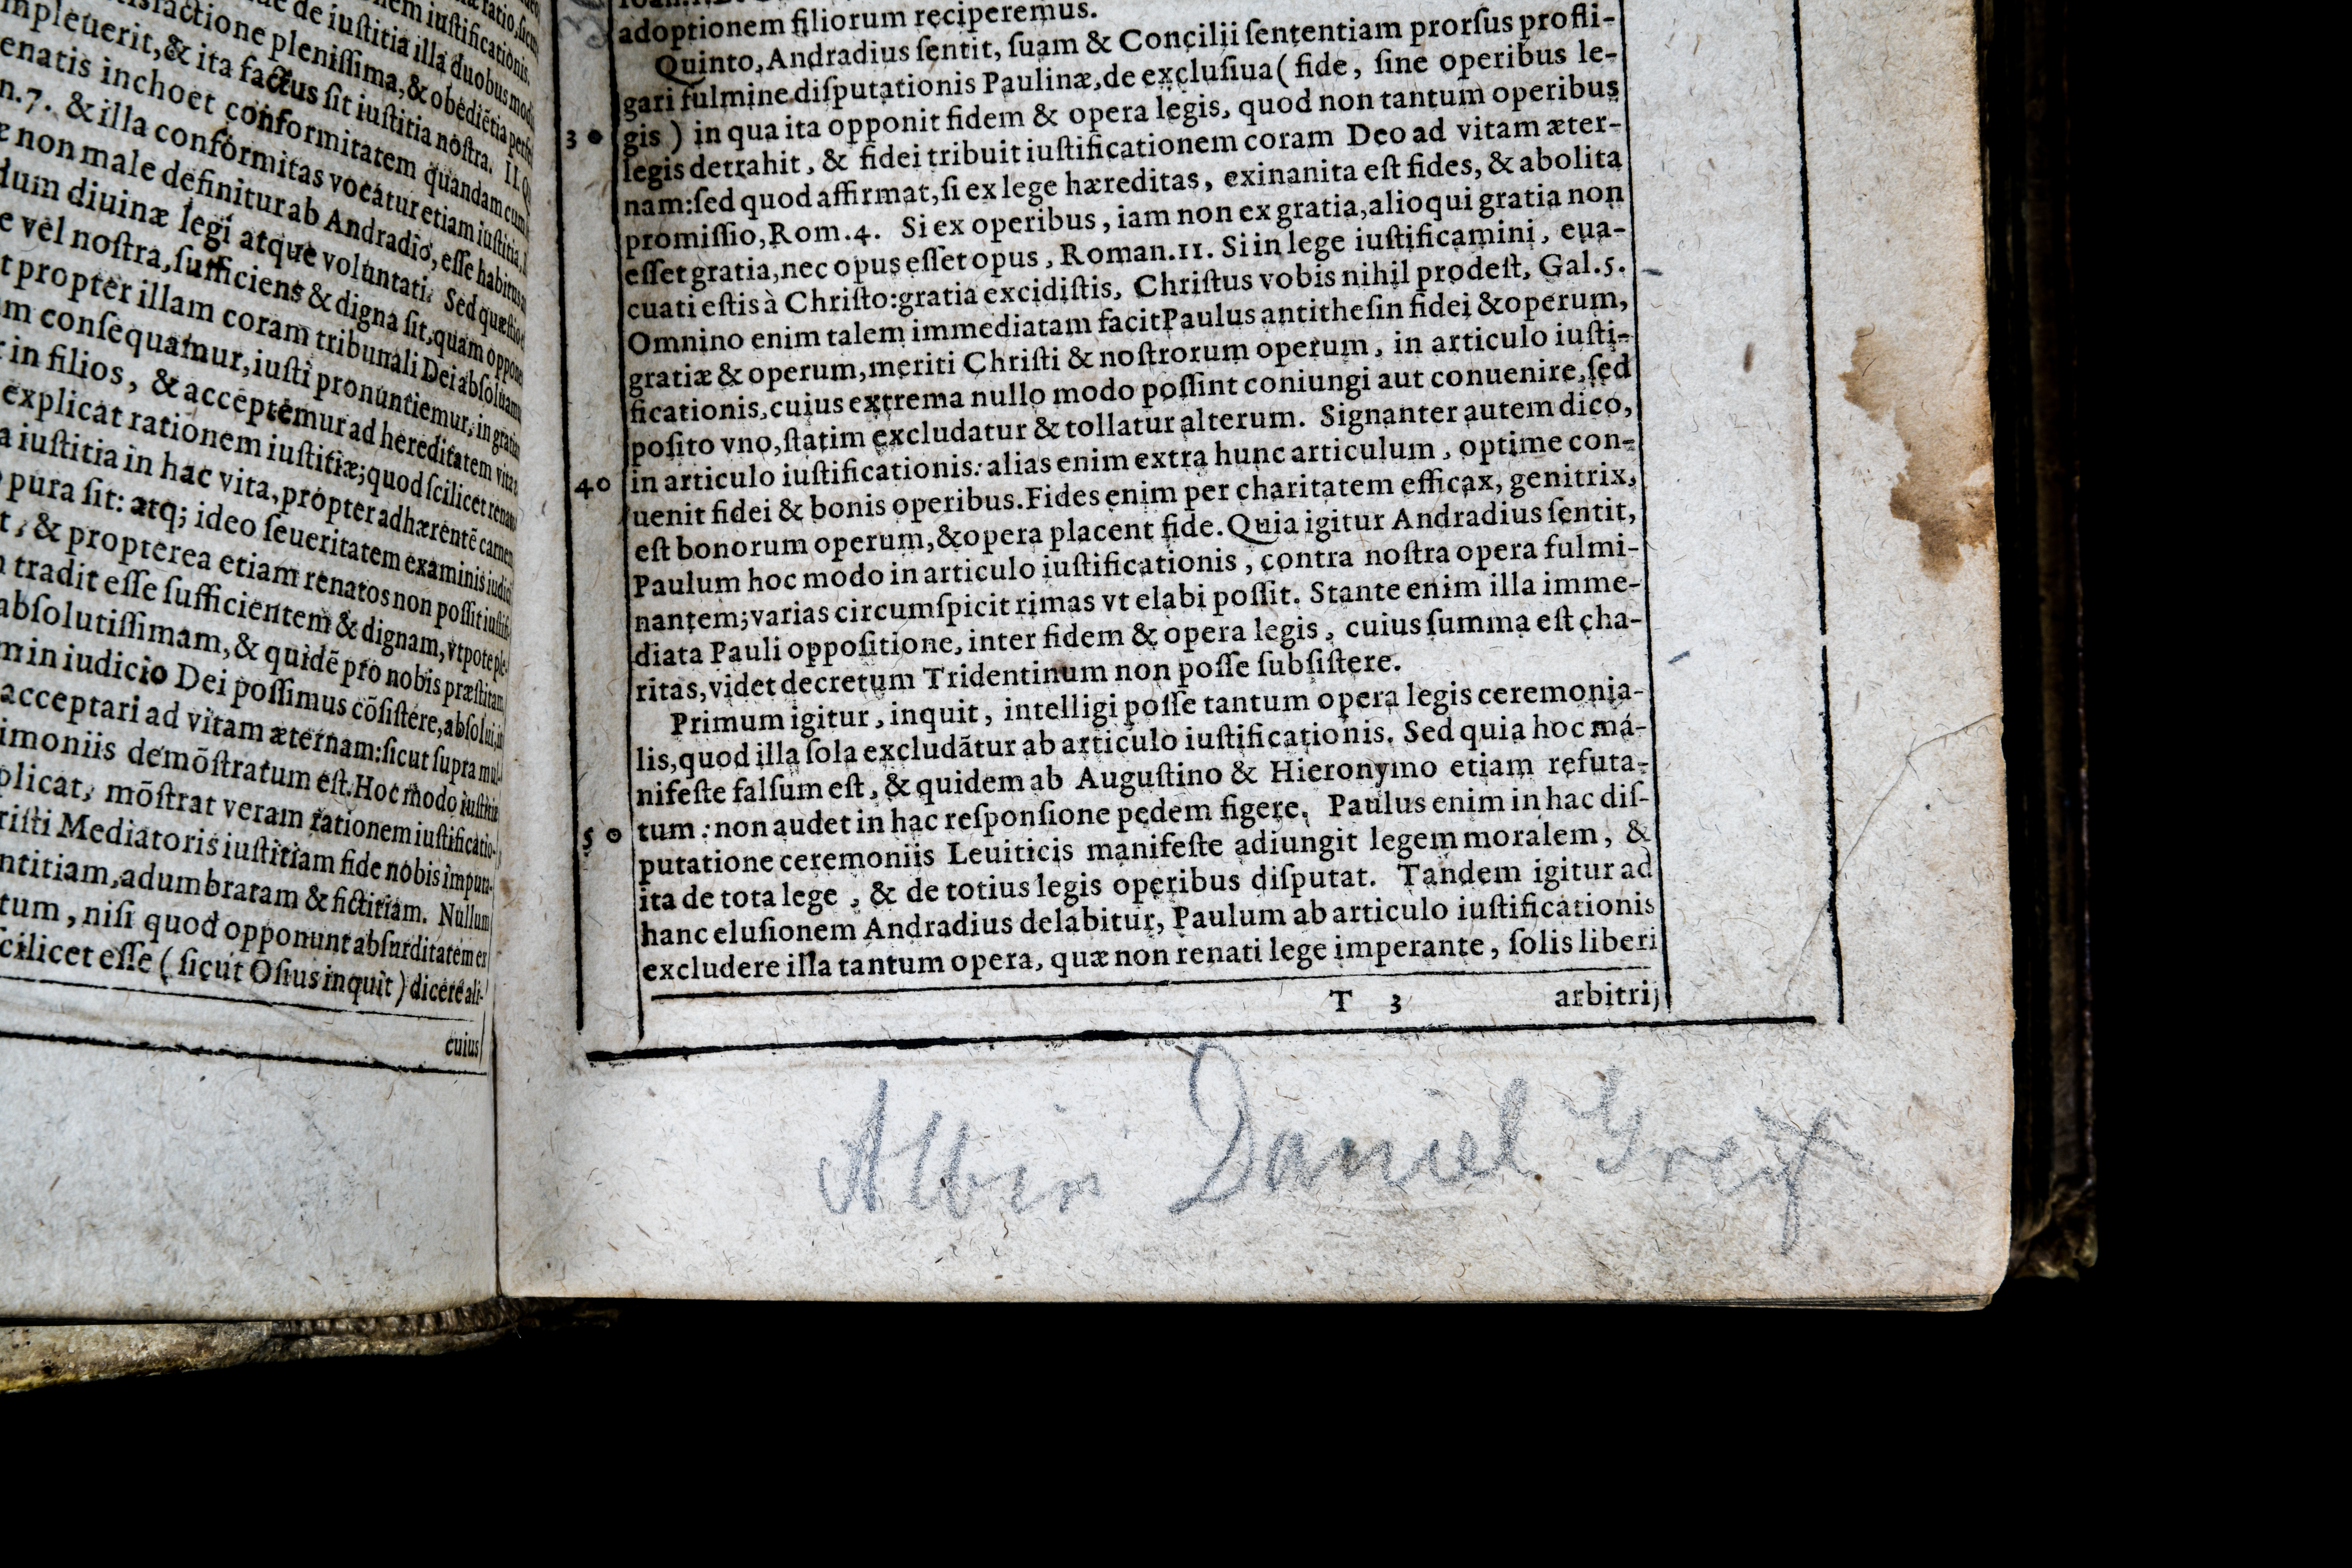 ratio, sicut
iustificationis.
de iustitia illa duobus modis
satisfactione plenissima, & obediētia perfe
impleuerit, & ita factus sit iustitia nostra. II. Qu
renatis inchoet conformitatem quandam cum
n. 7. & illa conformitas vocatur etiam iustitia,
non male definitur ab Andradio, esse habitus
diuinæ legi atque voluntati. Sed quæstio
vel nostra, sufficiens & digna sit, quam oppona
propter illam coram tribunali Dei absoluamur
consequamur, iusti pronuntiemur, in gratiam
in filios, & acceptemur ad hereditatem vitæ
explicat rationem iustitiæ; quod scilicet renato
iustitia in hac vita, propter adhærentē carnem
pura sit: atq; ideo seueritatem examinis iudicij
& propterea etiam renatos non possit iustif
tradit esse sufficientem & dignam, vtpote ple
absolutissimam, & quidē pro nobis præstitam
in iudicio Dei possimus cōsistere, absolui,
acceptari ad vitam æternam: sicut supra mul
imoniis demōstratum est. Hoc modo iustitiæ
plicat, mōstrat veram rationem iustificatio-
risti Mediatoris iustitiam fide nobis imputa-
ntitiam, adumbratam & fictitiam. Nullum
tum, nisi quod opponunt absurditatem ex
scilicet esse ( sicut Osius inquit ) dicere ali-
cuius
adoptionem filiorum reciperemus.
Quinto, Andradius sentit, suam & Concilii sententiam prorsus profli-
gari fulmine disputationis Paulinæ, de exclusiua ( fide, sine operibus le-
30 gis ) in qua ita opponit fidem & opera legis, quod non tantum operibus
legis detrahit, & fidei tribuit iustificationem coram Deo ad vitam æter-
nam: sed quod affirmat, si ex lege hæreditas, exinanita est fides, & abolita
promissio, Rom. 4. Si ex operibus, iam non ex gratia, alioqui gratia non
esset gratia, nec opus esset opus, Roman. 11. Si in lege iustificamini, eua-
cuati estis à Christo: gratia excidistis, Christus vobis nihil prodest, Gal. 5.
Omnino enim talem immediatam facit Paulus antithesin fidei & operum,
gratiæ & operum, meriti Christi & nostrorum operum, in articulo iusti-
ficationis, cuius extrema nullo modo possint coniungi aut conuenire, sed
posito vno, statim excludatur & tollatur alterum. Signanter autem dico,
40 in articulo iustificationis: alias enim extra hunc articulum, optime con-
uenit fidei & bonis operibus. Fides enim per charitatem efficax, genitrix,
est bonorum operum, & opera placent fide. Quia igitur Andradius sentit,
Paulum hoc modo in articulo iustificationis, contra nostra opera fulmi-
nantem; varias circumspicit rimas vt elabi possit. Stante enim illa imme-
diata Pauli oppositione, inter fidem & opera legis, cuius summa est cha-
ritas, videt decretum Tridentinum non posse subsistere.
Primum igitur, inquit, intelligi posse tantum opera legis ceremonia-
lis, quod illa sola excludātur ab articulo iustificationis. Sed quia hoc ma-
nifeste falsum est, & quidem ab Augustino & Hieronymo etiam refuta-
50 tum: non audet in hac responsione pedem figere. Paulus enim in hac dis-
putatione ceremoniis Leuiticis manifeste adiungit legem moralem, &
ita de tota lege, & de totius legis operibus disputat. Tandem igitur ad
hanc elusionem Andradius delabitur, Paulum ab articulo iustificationis
excludere illa tantum opera, quæ non renati lege imperante, solis liberi
T 3 arbitrij
Albin Daniel Greif